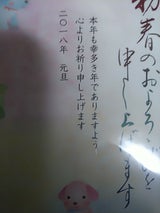 初春のおよろこびを
申し上げます
本年も幸多き年でありますよう
心よりお祈り申し上げます
二〇一八年 元旦